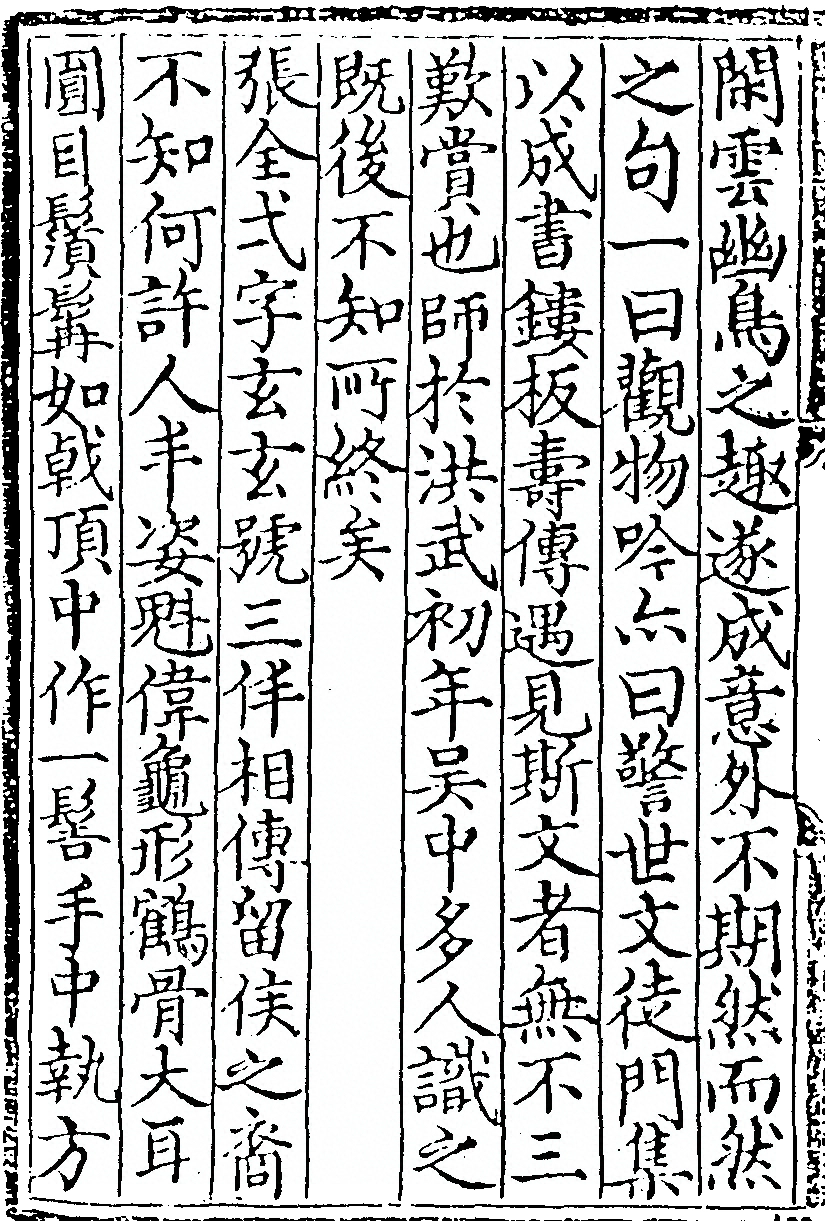 閑雲幽鳥之趣遂成意外不期然而然
之句一曰觀物吟亦曰警世文徒門集
以成書鏤板壽傳遇見斯文者無不三
歎賞也師於洪武初年吳中多人識之
既後不知所終矣
張全弌字玄玄號三仹相傳留侯之裔
不知何許人丰姿魁偉龜形鶴骨大耳
圓目鬚髯如戟頂中作一髻手中執方